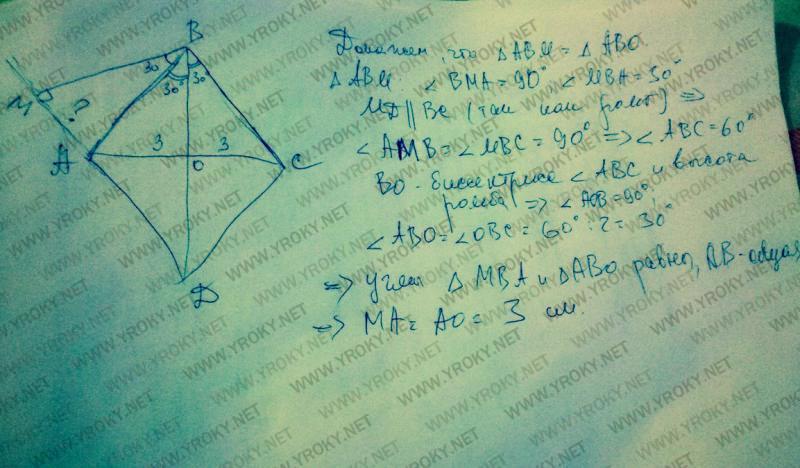 B
30
30
30
M
?
3
3
A
O
C
D
Докажем, что △ABM = △ABO
△ABM. ∠BMA=90°, ∠MBA=30°
MD || BC (так как ромб) ⇒
∠AMB=∠MBC=90° ⇒ ∠ABC=60°
BO - биссектриса ∠ABC и высота
ромба ⇒ ∠AOB=90°,
∠ABO=∠OBC=60°:2=30°
⇒ углы △MBA и △ABO равны, AB-общая
⇒ MA = AO = 3 см.
WWW.YROKY.NET